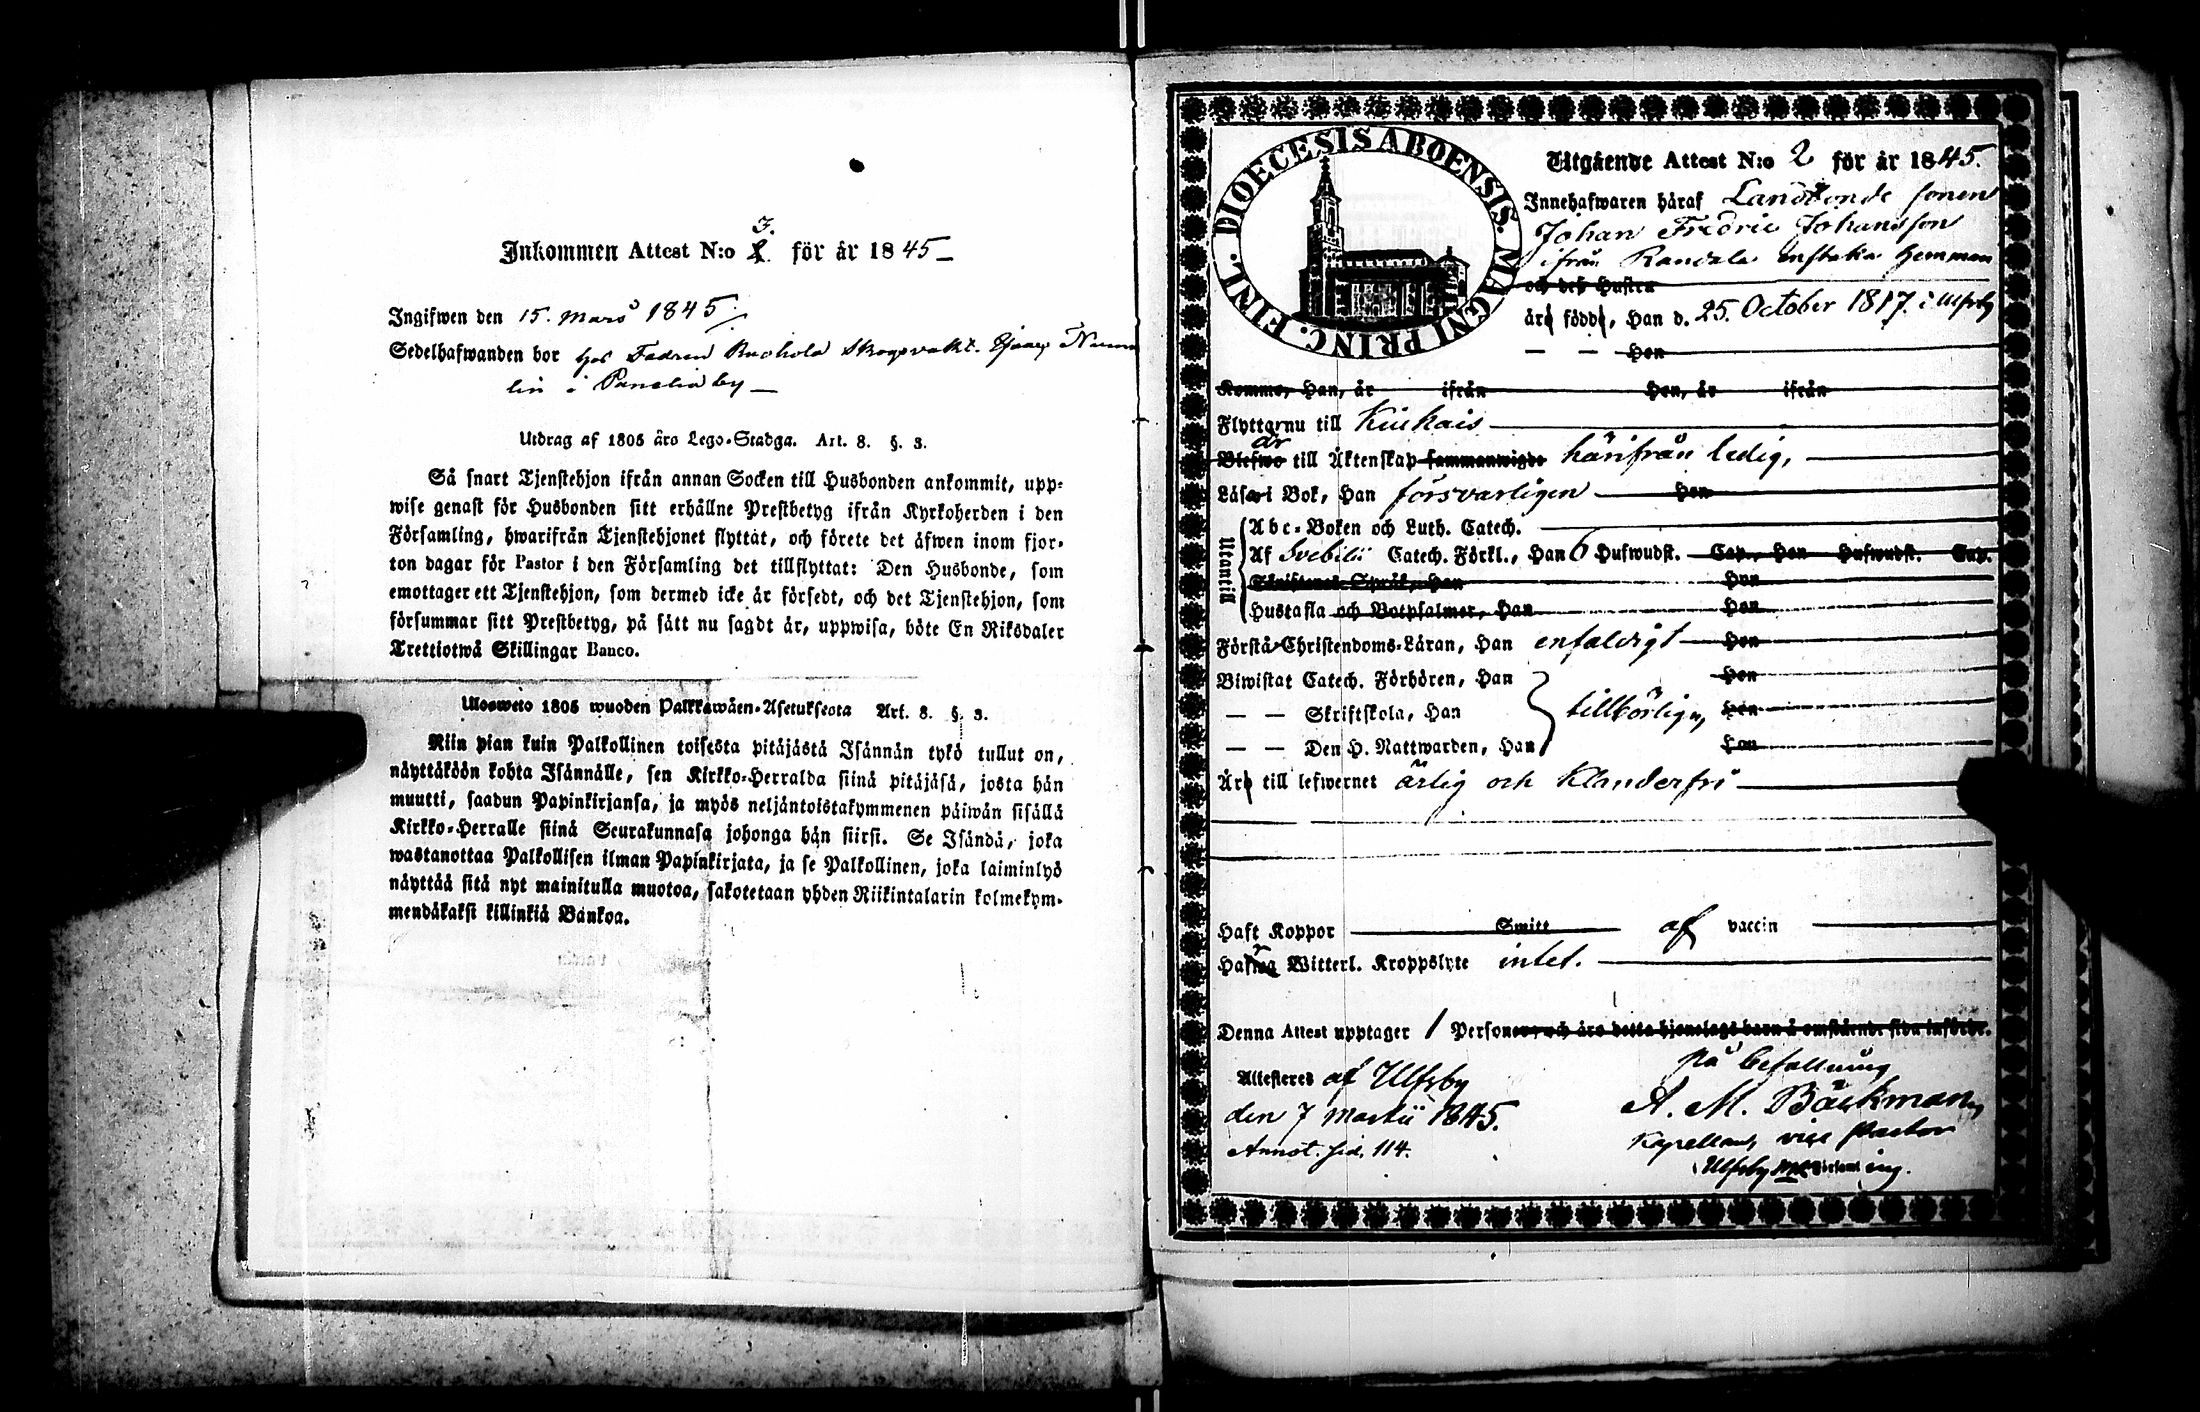 Inkommen Attest N:o 3. för år 1845
Ingifwen den 15. Mars 1845.
Sedelhafwanden bor hos Fadren
lin i Panelia by
Utdrag af 1805 års Lego-Stadga. Art. 8. §. 3.
Så snart Tjenstehjon ifrån annan Socken till Husbonden ankommit, upp-
wise genast för Husbonden sitt erhållne Prestbetyg ifrån Kyrkoherden i den
Församling, hwarifrån Tjenstehjonet flyttat, och förete det äfwen inom fjor-
ton dagar för Pastor i den Församling det tillflyttat: Den Husbonde, som
emottager ett Tjenstehjon, som dermed icke är försedt, och det Tjenstehjon, som
försummar sitt Prestbetyg, på sätt nu sagdt är, uppwisa, böte En Riksdaler
Trettiotwå Skillingar Banco.
Ulosweto 1805 wuoden Palkkawäen-Asetuksesta Art. 8. §. 3.
Niin pian kuin Palkollinen toisesta pitäjästä Isännän tykö tullut on,
näyttäköön kohta Isännälle, sen Kirkko-Herralda siinä pitäjäsä, josta hän
muutti, saadun Papinkirjansa, ja myös neljäntoistakymmenen päiwän sisällä
Kirkko-Herralle siinä Seurakunnasa johonga hän siirsi. Se Isändä, joka
wastanottaa Palkollisen ilman Papinkirjata, ja se Palkollinen, joka laiminlyö
näyttää sitä nyt mainitulla muotoa, sakotetaan yhden Riikintalarin kolmekym-
mendäkaksi killinkiä Bankoa.
DIOECESIS ABOENSIS. MAGNI PRINC. FINL.
Utgående Attest N:o 2 för år 1845.
Innehafwaren häraf Landbonde sonen
Johan Fredric Johansson
ifrån Randala enstaka hemman
och deß Hustru
äro födde, Han d. 25. October 1817. i Ulfsby
— — Hon
Komme, Han, år ifrån Hon, år ifrån
Flyttar nu till Kiukais
är
Blefwo till Äktenskap sammanwigde härifrån ledig,
Läsa i Bok, Han försvarligen Hon
Utantill
Abc-Boken och Luth. Catech.
Af Svebilii Catech. Förkl., Han 6 Hufwudst. Cap., Hon Hufwudst. Cap.
Skriftenes Språk, Han Hon
Hustafla och Botpsalmer, Han Hon
Förstå Christendoms-Läran, Han enfaldigt Hon
Biwistat Catech. Förhören, Han Hon
— — Skriftskola, Han tillbörligen Hon
— — Den H. Nattwarden, Han Hon
Äro till lefwernet ärlig och klanderfri
Haft Koppor Smitt af vaccin
Hafwa Witterl. Kroppslyte intet.
Denna Attest upptager 1 Personer, och äro detta hjonelags barn å omstående sida införde.
Attesteres af Ulfsby
den 7 Martii 1845.
Annot. sid. 114.
på befallning
A. M. Bäckman,
Kapellan, vice Pastor
i Ulfsby